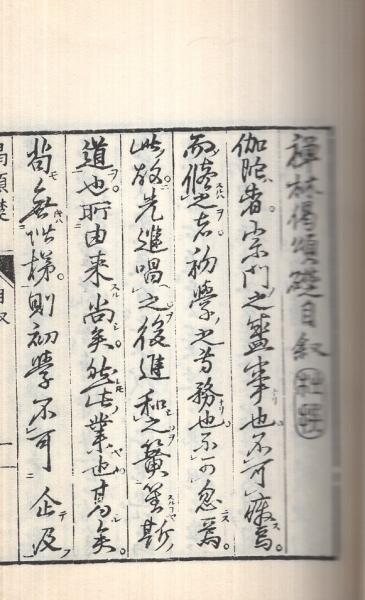 禅林偈頌礎自叙
伽陀者宗門之盛事也不可癈焉
而修之者初學之務也不可忽焉
此故先進唱之後進和之斯
道也所由来尚矣然此業也矣
苟無階梯則初學不可企及
偈頌礎 自叙